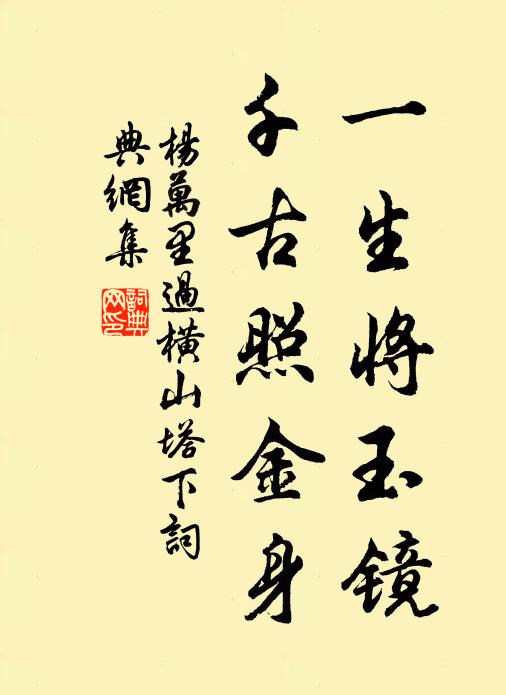 一生将玉镜
千古照金身
楊萬里過橫山塔下詞
典網集
詞典
网印